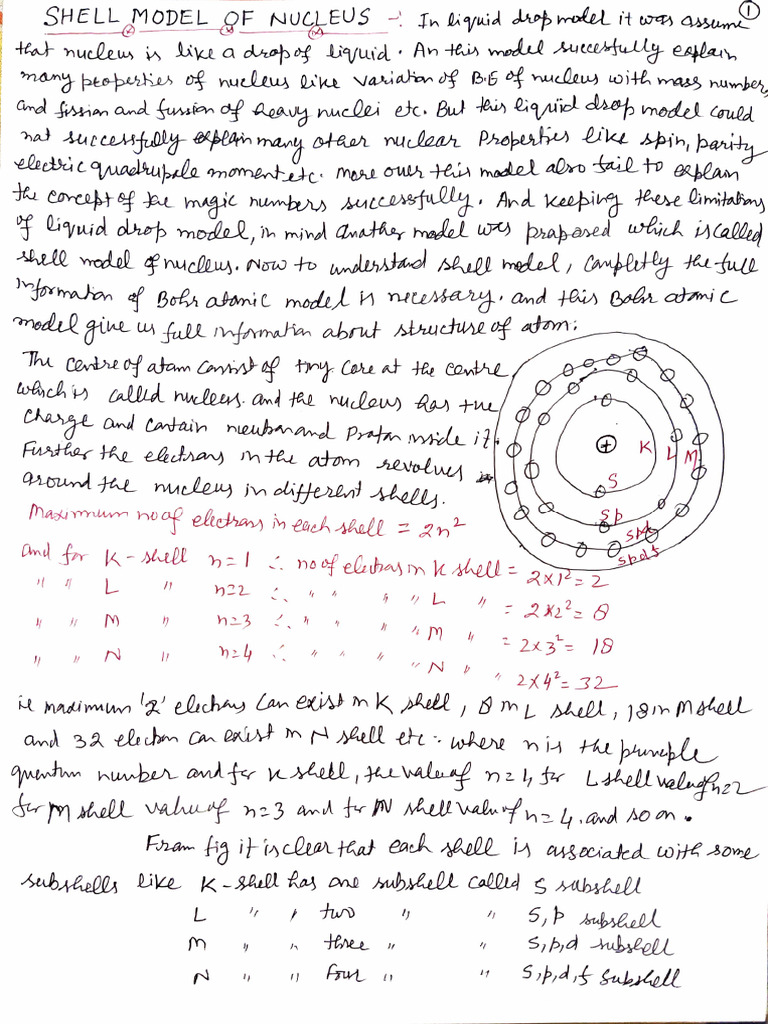 ①
SHELL MODEL OF NUCLEUS -: In liquid drop model it was assume
that nucleus is like a drop of liquid. An this model succesfully explain
many properties of nucleus like variation of B.E of nucleus with mass number,
and fission and fussion of heavy nuclei etc. But this liquid drop model could
not successfully explain many other nuclear Properties like spin, parity
electric quadrupale moment etc. more over this model also fail to explain
the concept of the magic numbers successfully. And keeping these limitations
of liquid drop model, in mind another model was praposed which is called
shell model of nucleus. Now to understand shell model, campletly the full
Information of Bohr atomic model is necessary. and this Bohr atomic
model give us full information about structure of atom:
The centre of atom consist of tiny core at the centre,
which is called nucleus. and the nucleus has +ve
charge and contain neutron and Proton inside it.
Further the electrons in the atom revolves
around the nucleus in different shells.
+
K L M
S
SP
spd
spdf
Maximum no of electrons in each shell = 2n²
and for K-shell n=1 ∴ no of electrons in K shell = 2×1²=2
" " L " n=2 ∴ " " " L " = 2×2² = 8
" " M " n=3 ∴ " " " M " = 2×3² = 18
" " N " n=4 ∴ " " " N " " 2×4²=32
ie maximum '2' electrons can exist in K shell, 8 in L shell, 18 in M shell
and 32 electron can exist in N shell etc. where n is the principle
quantum number and for K shell, the value of n=1, for L shell value of n=2
for M shell value of n=3 and for N shell value of n=4. and so on.
From fig it is clear that each shell is associated with some
subshells like K-shell has one subshell called S subshell
L " " two " " S, p subshell
M " " three " " S, p, d subshell
N " " Four " " S, p, d, f subshell